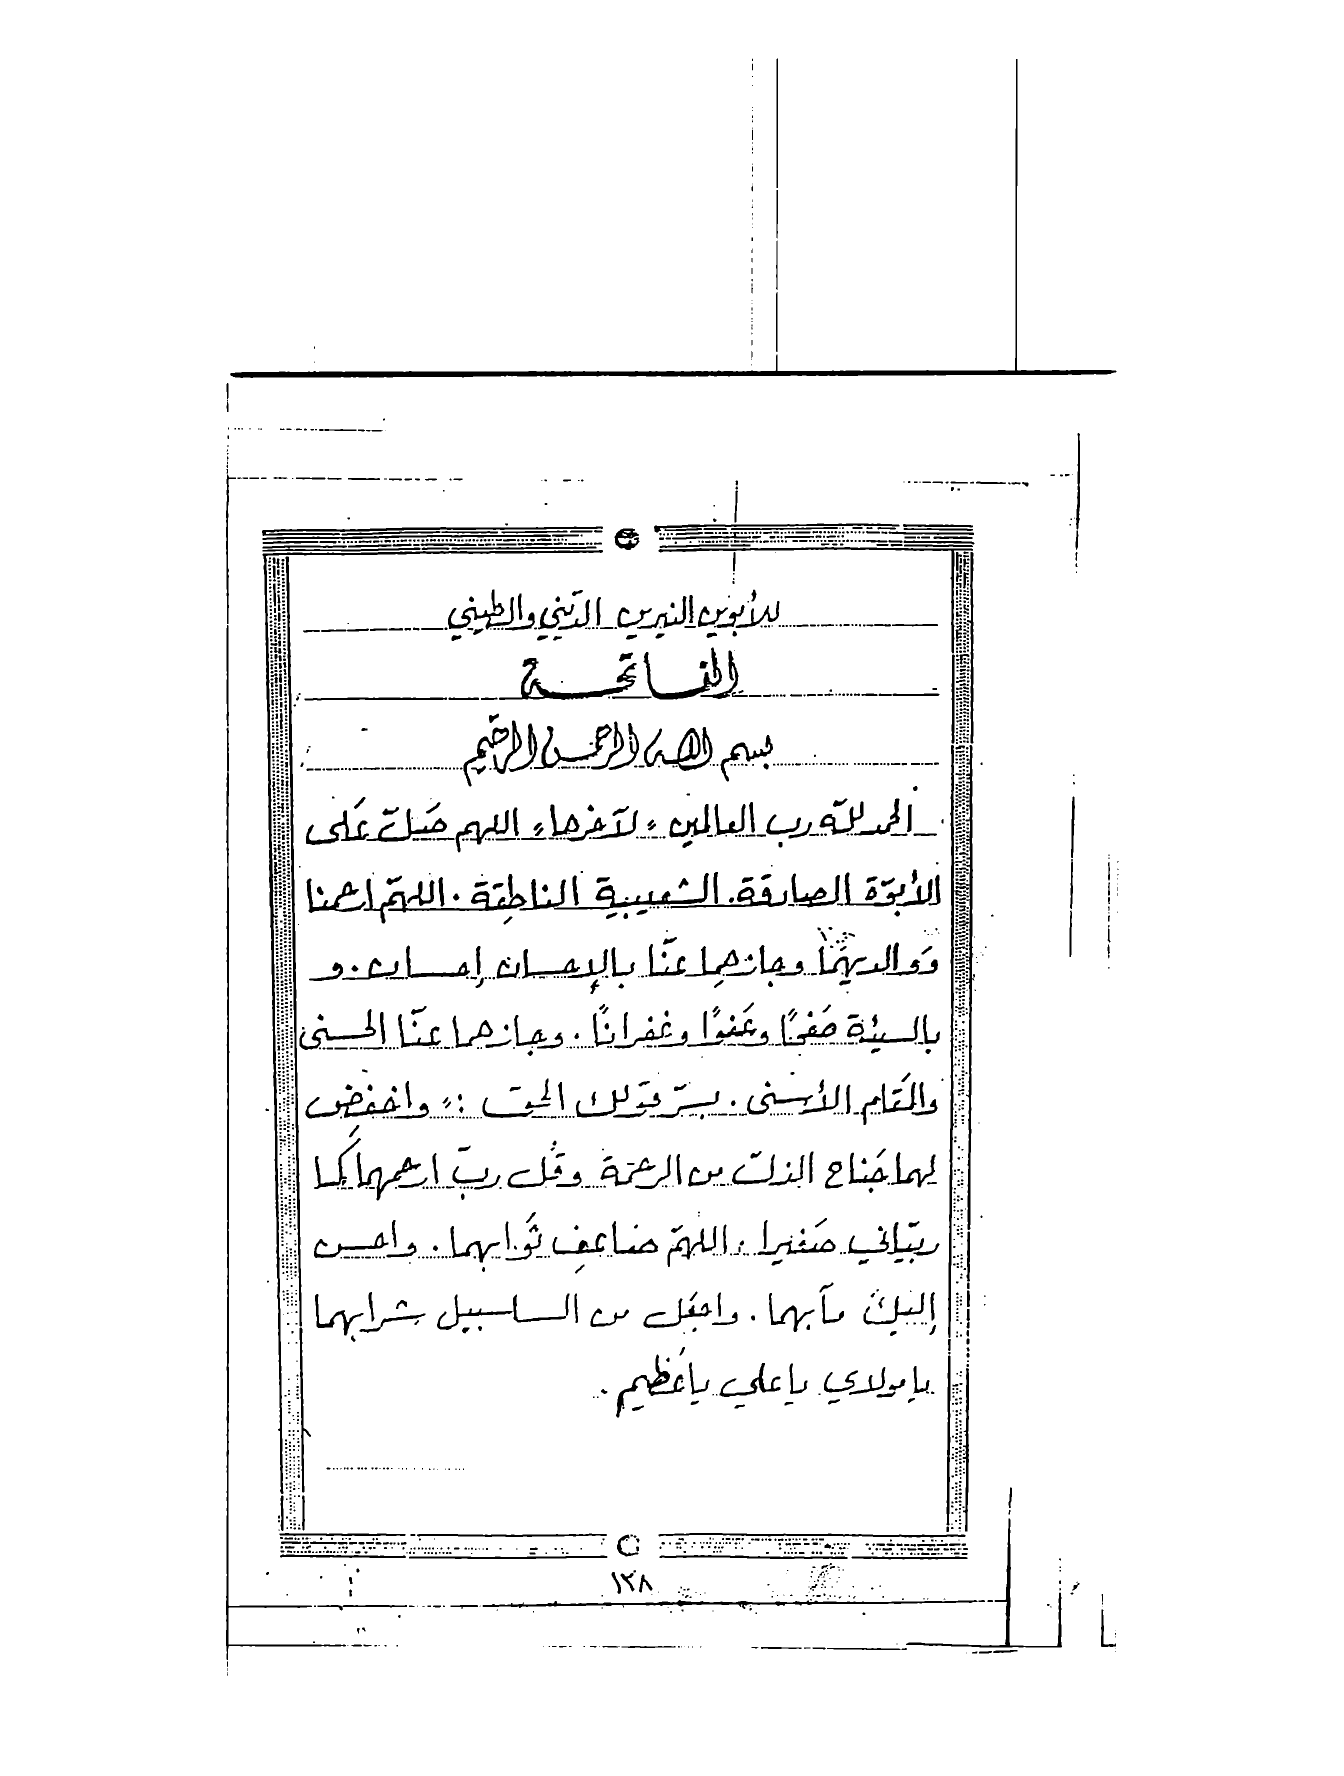 للأبوين النيرين الدّيني والطيني
الفاتحة
بسم الله الرحمن الرحيم
الحمد للّه رب العالمين ، لآخرها ، اللهم صَلّ عَلى
الأبوّة الصادقة . الشعيبية الناطِقة . اللهمّ ارحمنا
وَوالديهمَا وجازهِما عنّا بالإحسان إحسان . و
بالسيئة صَفحًا وعَفوًا وغفرانًا . وجازهما عنّا الحسنى
والمقَام الأسنى . بسرّ قولك الحق : ، واخفِض
لهما جَناح الذلّ من الرحمَة وقُل ربّ ارحمهما كَما
ربّياني صَغيرا ، اللهمّ ضاعفِ ثَوابهما . واحسن
إليكَ مآبهما . واجعَل من السلسبيل شرابهما
يا مولاي يا علي يا عَظيم .
١٢٨